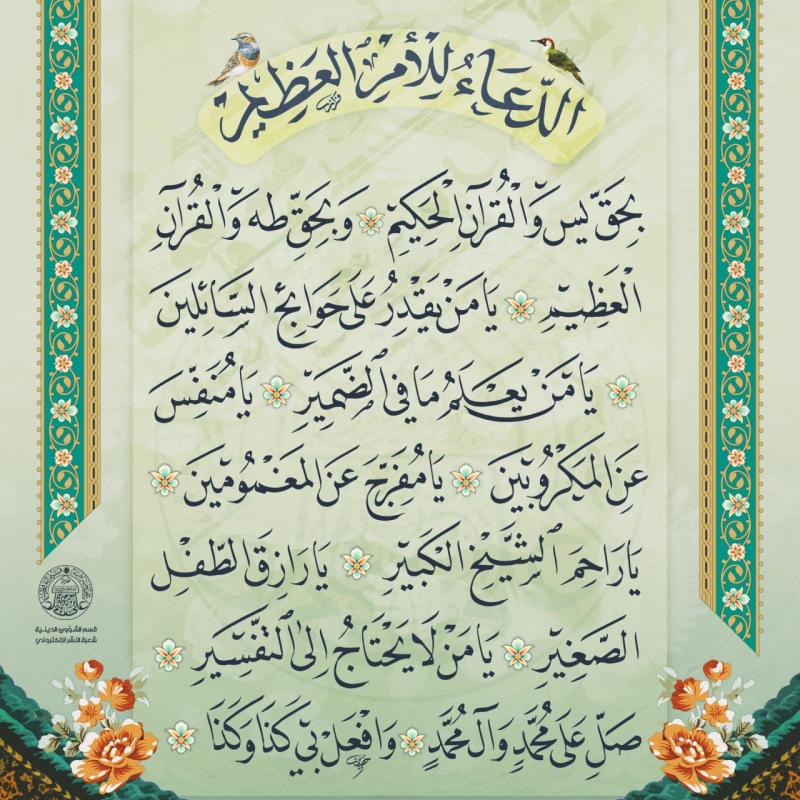 الدُّعَاءُ لِلْأَمْرِ الْعَظِيمِ
بِحَقِّ يس وَالْقُرْآنِ الْحَكِيمِ وَبِحَقِّ طه وَالْقُرْآنِ
الْعَظِيمِ يَا مَنْ يَقْدِرُ عَلَى حَوَائِجِ السَّائِلِينَ
يَا مَنْ يَعْلَمُ مَا فِي الضَّمِيرِ يَا مُنَفِّسَ
عَنِ الْمَكْرُوبِينَ يَا مُفَرِّجَ عَنِ الْمَغْمُومِينَ
يَا رَاحِمَ الشَّيْخِ الْكَبِيرِ يَا رَازِقَ الطِّفْلِ
الصَّغِيرِ يَا مَنْ لَا يَحْتَاجُ إِلَى التَّفْسِيرِ
صَلِّ عَلَى مُحَمَّدٍ وَآلِ مُحَمَّدٍ وَافْعَلْ بِي كَذَا وَكَذَا
قسم الشؤون الدينية
شعبة النشر الإلكتروني